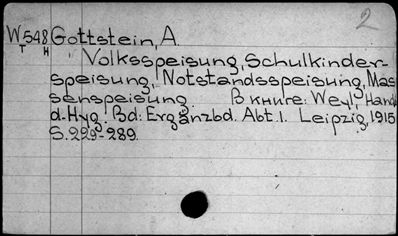 2
W548 Gottstein, A.
T H Volksspeisung, Schulkinder-
speisung, Notstandsspeisung, Mas
senspeisung. В книге: Weyl, Handb.
d. Hyg. Bd: Ergänzbd. Abt. 1. Leipzig, 1915
S. 229-289.